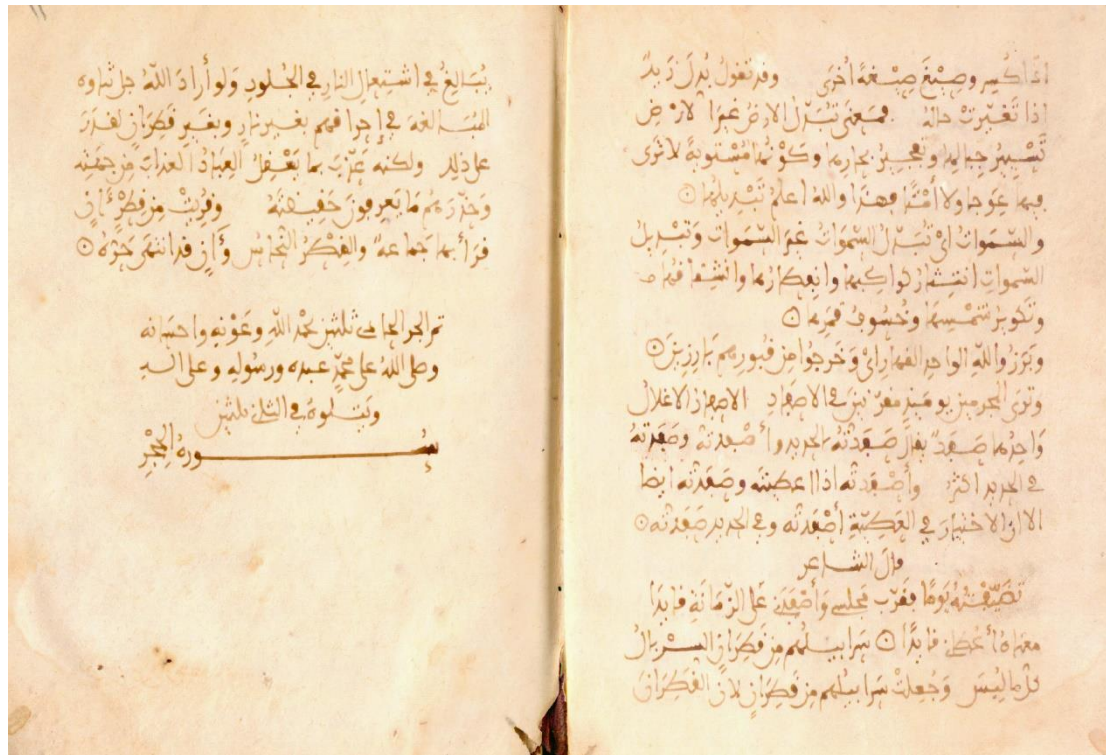 اذا كسر وصيغ صيغة اخرى وقد تقول بدل زيد
اذا تغيرت حاله فمعنى تبدل الارض غير الارض
تسيير جبالها وتفجير بحارها وكونها مستوية لا ترى
فيها عوجا ولا أمتا فهذا والله اعلم تبديلها ⊙
والسموات اي تبدل السموات غير السموات وتبديل
السموات انتثار كواكبها وانفطارها وانشقاقها
وتكوير شمسها وخسوف قمرها ⊙
وبرزوا لله الواحد القهار اي وخرجوا من قبورهم بارزين ⊙
وترى المجرمين يومئذ مقرنين في الاصفاد الاصفاد الاغلال
واحدها صفد يقال صفدته بالحديد وأصفدته وصفدته
في الحديد اكثر وأصفدته اذا اعطيته وصفدته ايضا
الا ان الاختيار في العطية أصفدته وفي الحديد صفدته ⊙
قال الشاعر
تضيفته يوما فقرب مجلسي وأصفدني على الزمانة قايدا
معناه أعطاني قايدا ⊙ سرابيلهم من قطران السربال
كل ما لبس وجعلت سرابيلهم من قطران لان القطران
يبالغ في اشتعال النار في الجلود ولو أراد الله جل ثناوه
المبالغة في إحراقهم بغير نار وبغير قطران لقدر
على ذلك ولكنه عذب بما يعقل العباد العذاب من جهته
وحذرهم ما يعرفون حقيقته وقريت من قطر ءان
قرأ بها جماعة والقطر النحاس وءان قد انتهى حره ⊙
تم الجز الحادي ثلثين بحمد الله وعونه واحسانه
وصلى الله على محمد عبده ورسوله وعلى اله
ويتلوه في الثاني ثلثين
سورة الحجر